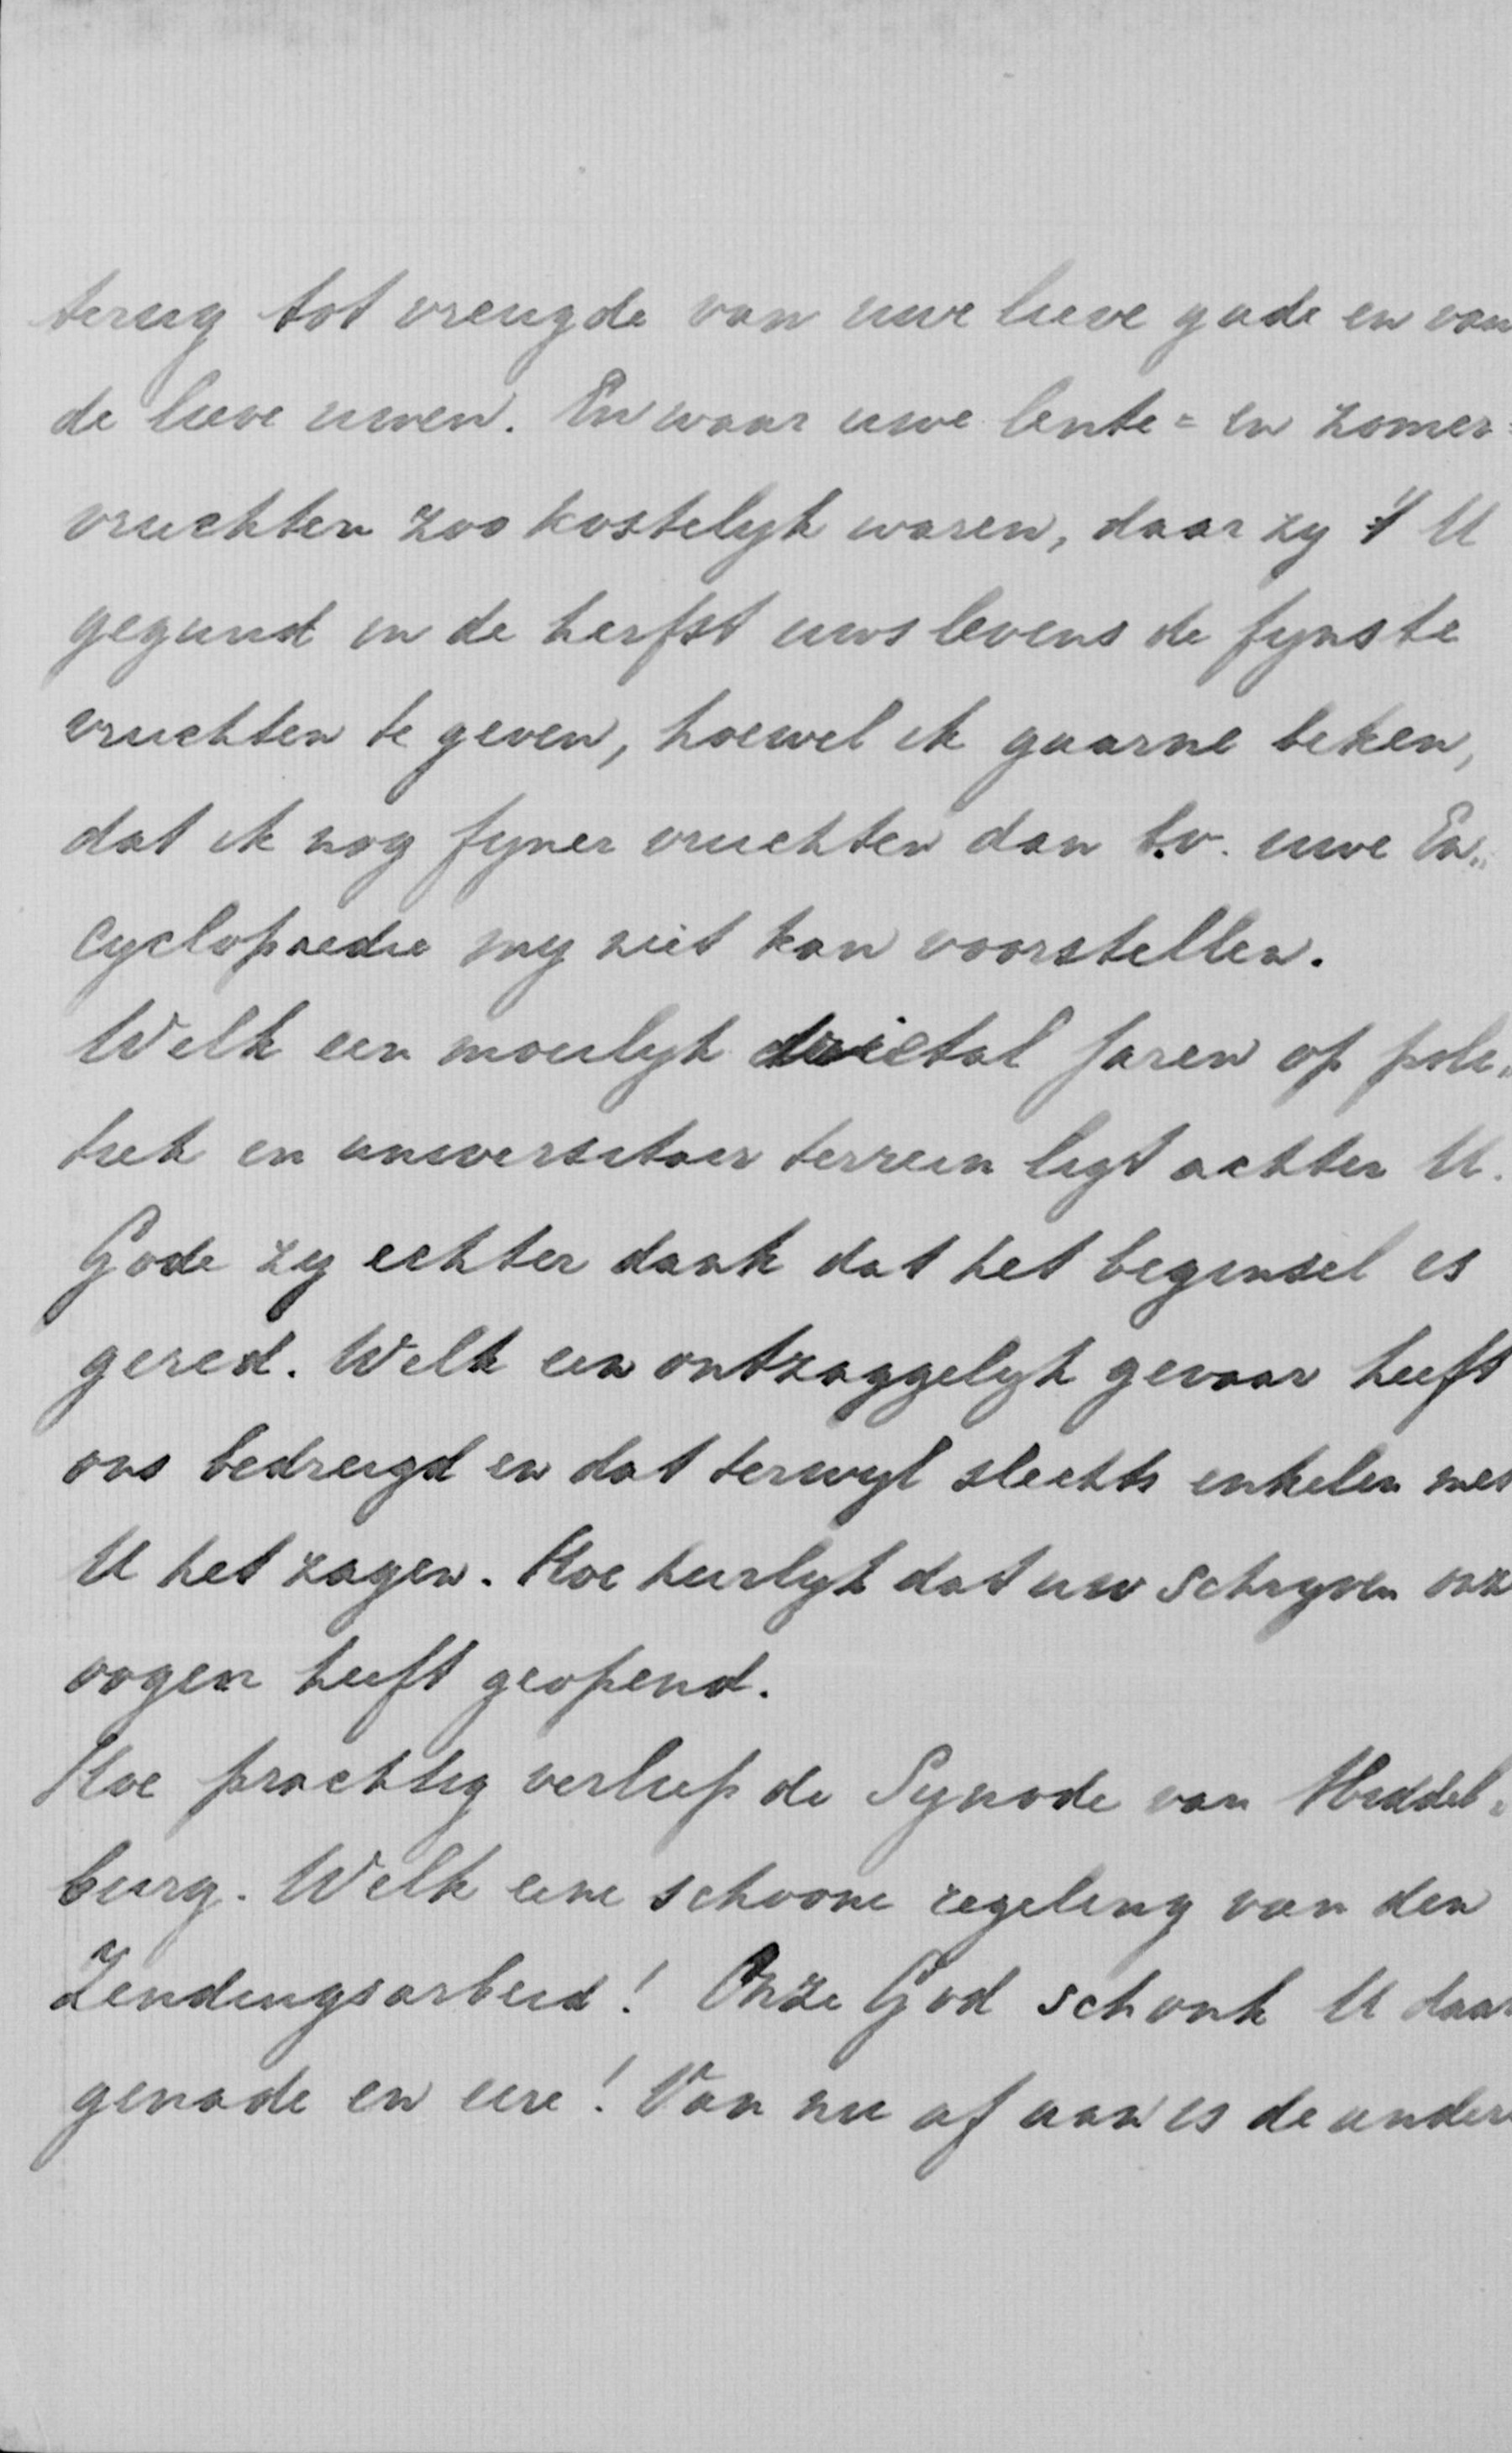 terug tot vreugde van uwe lieve gade en van
de lieve uwen. En waar uwe lente= en zomer=
vruchten zoo kostelijk waren, daar zij 't U
gegund in de herfst uws levens de fijnste
vruchten te geven, hoewel ik gaarne beken,
dat ik nog fijner vruchten dan b.v. uwe En„
cyclopaedie mij niet kan voorstellen.
Welk een moeilijk drietal jaren op poli„
tiek en universitair terrein ligt achter U.
Gode zij echter dank dat het beginsel is
gered. Welk een ontzaggelijk gevaar heeft
ons bedreigd en dat terwijl slechts enkelen met
U het zagen. Hoe heerlijk dat uw schrijven onze
oogen heeft geopend.
Hoe prachtig verliep de Synode van Middel„
burg. Welk eene schoone regeling van den
Zendingsarbeid! Onze God schonk U daar
genade en eere! Van nu af aan is de